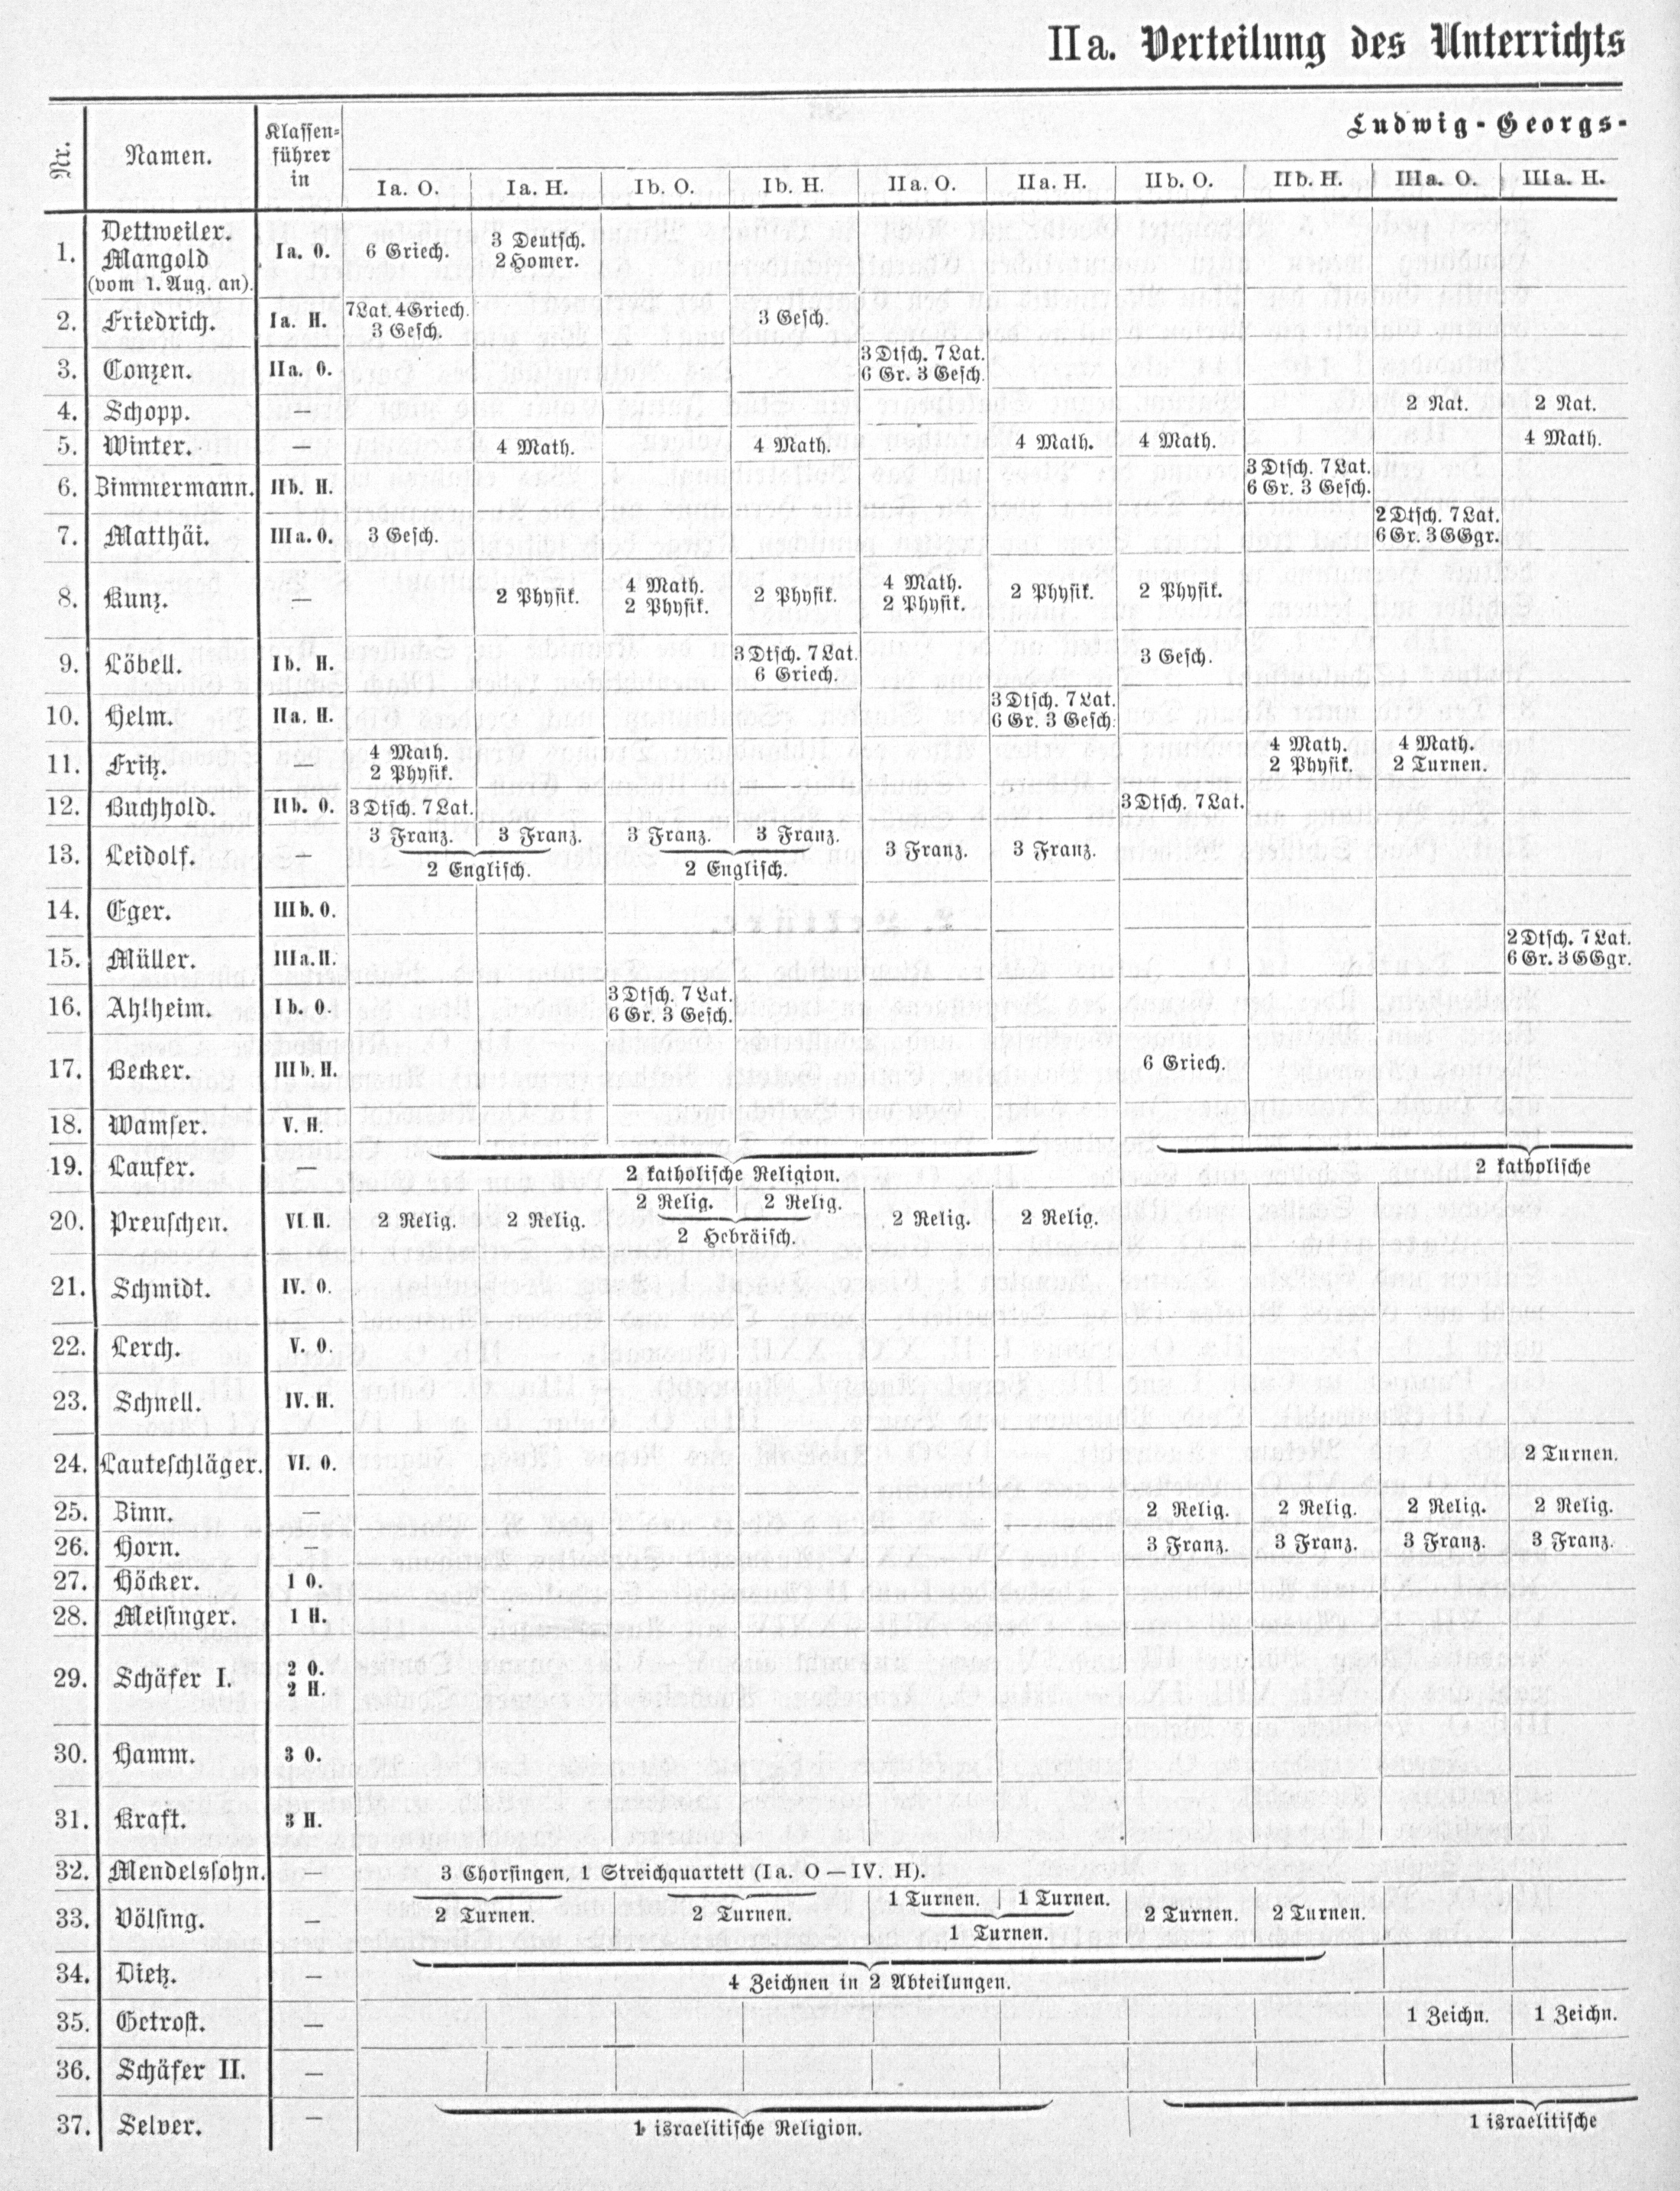 IIa. Verteilung des Unterrichts
Nr.
Namen.
Klassen-
führer
in
Ludwig-Georgs-
Ia. O. Ia. H. Ib. O. Ib. H. IIa. O. IIa. H. IIb. O. IIb. H. IIIa. O. IIIa. H.
1.
Dettweiler.
Mangold
(vom 1. Aug. an).
Ia. O.
6 Griech.
3 Deutsch.
2 Homer.
2. Friedrich. Ia. H.
7Lat. 4Griech.
3 Gesch.
3 Gesch.
3. Conzen. IIa. O.
3 Dtsch. 7 Lat.
6 Gr. 3 Gesch.
4. Schopp. — 2 Nat. 2 Nat.
5. Winter. — 4 Math. 4 Math. 4 Math. 4 Math. 4 Math.
6. Zimmermann. IIb. H.
3 Dtsch. 7 Lat.
6 Gr. 3 Gesch.
7. Matthäi. IIIa. O. 3 Gesch.
2 Dtsch. 7 Lat.
6 Gr. 3 GGgr.
8. Kunz. — 2 Physik.
4 Math.
2 Physik.
2 Physik.
4 Math.
2 Physik.
2 Physik. 2 Physik.
9. Löbell. Ib. H.
3 Dtsch. 7 Lat.
6 Griech.
3 Gesch.
10. Helm. IIa. H.
3 Dtsch. 7 Lat.
6 Gr. 3 Gesch.
11. Fritz. —
4 Math.
2 Physik.
4 Math.
2 Physik.
4 Math.
2 Turnen.
12. Buchhold. IIb. O. 3 Dtsch. 7 Lat. 3 Dtsch. 7 Lat.
13. Leidolf. —
3 Franz. 3 Franz. 3 Franz. 3 Franz.
2 Englisch. 2 Englisch.
3 Franz. 3 Franz.
14. Eger. IIIb. O.
15. Müller. IIIa. H.
2 Dtsch. 7 Lat.
6 Gr. 3 GGgr.
16. Ahlheim. Ib. O.
3 Dtsch. 7 Lat.
6 Gr. 3 Gesch.
17. Becker. IIIb. H. 6 Griech.
18. Wamser. V. H.
19. Laufer. — 2 katholische Religion. 2 katholische
20. Preuschen. VI. H. 2 Relig. 2 Relig.
2 Relig. 2 Relig.
2 Hebräisch.
2 Relig. 2 Relig.
21. Schmidt. IV. O.
22. Lerch. V. O.
23. Schnell. IV. H.
24. Lauteschläger. VI. O. 2 Turnen.
25. Zinn. — 2 Relig. 2 Relig. 2 Relig. 2 Relig.
26. Horn. — 3 Franz. 3 Franz. 3 Franz. 3 Franz.
27. Höcker. 1 O.
28. Meisinger. 1 H.
29. Schäfer I.
2 O.
2 H.
30. Hamm. 3 O.
31. Kraft. 3 H.
32. Mendelssohn. — 3 Chorsingen, 1 Streichquartett (Ia. O — IV. H).
33. Völsing. — 2 Turnen. 2 Turnen.
1 Turnen. 1 Turnen.
1 Turnen.
2 Turnen. 2 Turnen.
34. Dietz. — 4 Zeichnen in 2 Abteilungen.
35. Getrost. — 1 Zeichn. 1 Zeichn.
36. Schäfer II. —
37. Selver. — 1 israelitische Religion. 1 israelitische